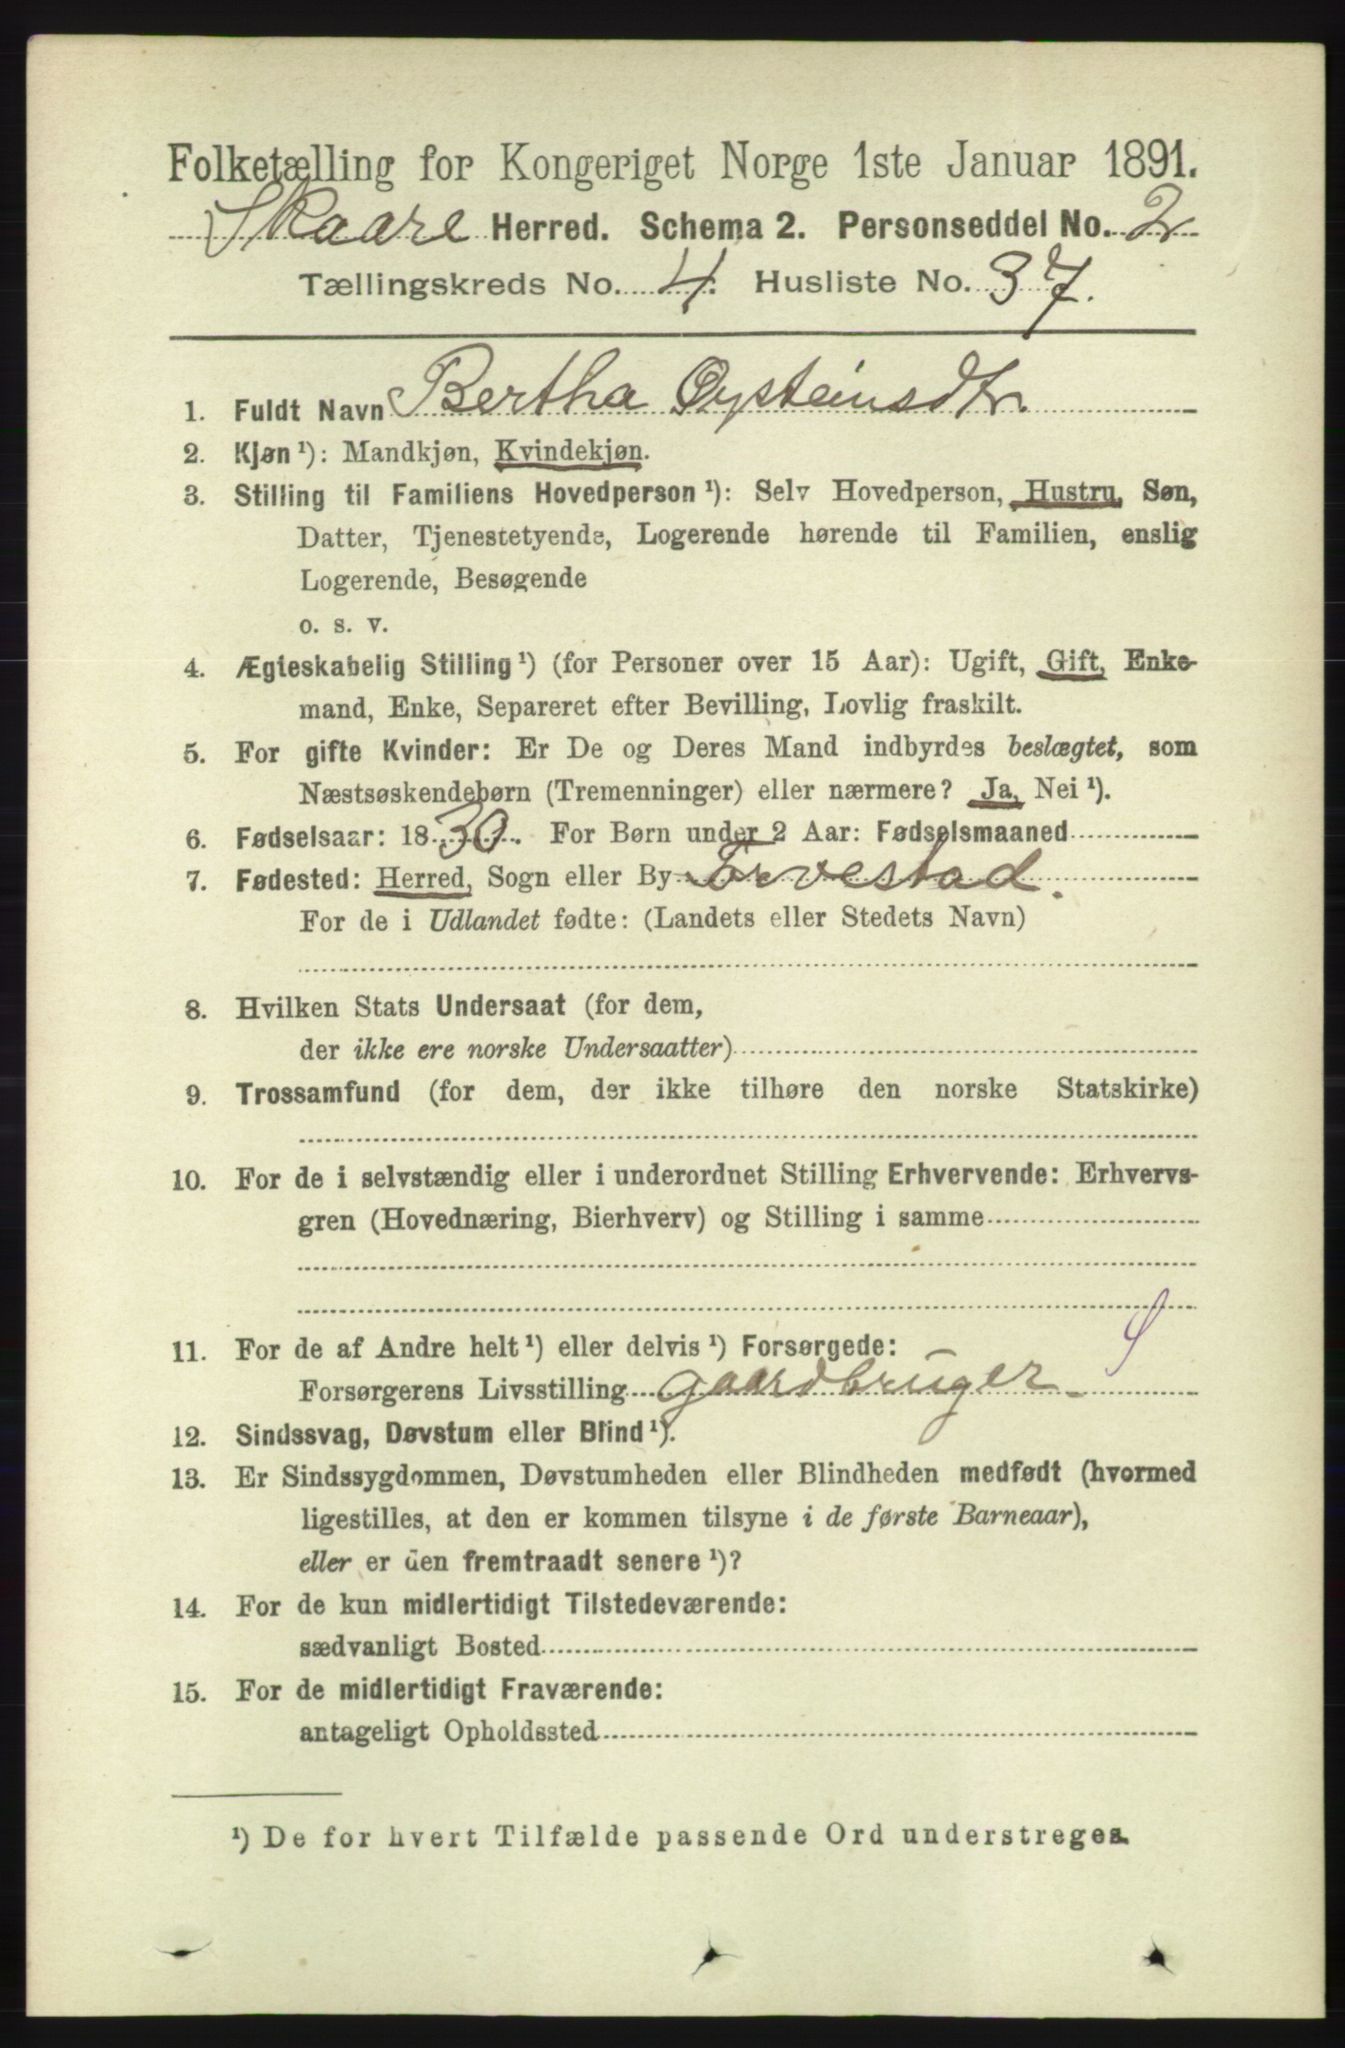 Folketælling for Kongeriget Norge 1ste Januar 1891.
Skaare Herred. Schema 2. Personseddel No. 2
Tællingskreds No. 4. Husliste No. 37.
1. Fuldt Navn Bertha Øysteinsdtr.
2. Kjøn ¹): Mandkjøn, Kvindekjøn.
3. Stilling til Familiens Hovedperson ¹): Selv Hovedperson, Hustru, Søn,
Datter, Tjenestetyende, Logerende hørende til Familien, enslig
Logerende, Besøgende
o. s. v.
4. Ægteskabelig Stilling ¹) (for Personer over 15 Aar): Ugift, Gift, Enke-
mand, Enke, Separeret efter Bevilling, Lovlig fraskilt.
5. For gifte Kvinder: Er De og Deres Mand indbyrdes beslægtet, som
Næstsøskendebørn (Tremenninger) eller nærmere? Ja, Nei ¹).
6. Fødselsaar: 1830. For Børn under 2 Aar: Fødselsmaaned
7. Fødested: Herred, Sogn eller By Torvestad.
For de i Udlandet fødte: (Landets eller Stedets Navn)
8. Hvilken Stats Undersaat (for dem,
der ikke ere norske Undersaatter)
9. Trossamfund (for dem, der ikke tilhøre den norske Statskirke)
10. For de i selvstændig eller i underordnet Stilling Erhvervende: Erhvervs-
gren (Hovednæring, Bierhverv) og Stilling i samme
11. For de af Andre helt ¹) eller delvis ¹) Forsørgede:
Forsørgerens Livsstilling gaardbruger
12. Sindssvag, Døvstum eller Blind ¹).
13. Er Sindssygdommen, Døvstumheden eller Blindheden medfødt (hvormed
ligestilles, at den er kommen tilsyne i de første Barneaar),
eller er den fremtraadt senere ¹)?
14. For de kun midlertidigt Tilstedeværende:
sædvanligt Bosted
15. For de midlertidigt Fraværende:
antageligt Opholdssted
¹) De for hvert Tilfælde passende Ord understreges.